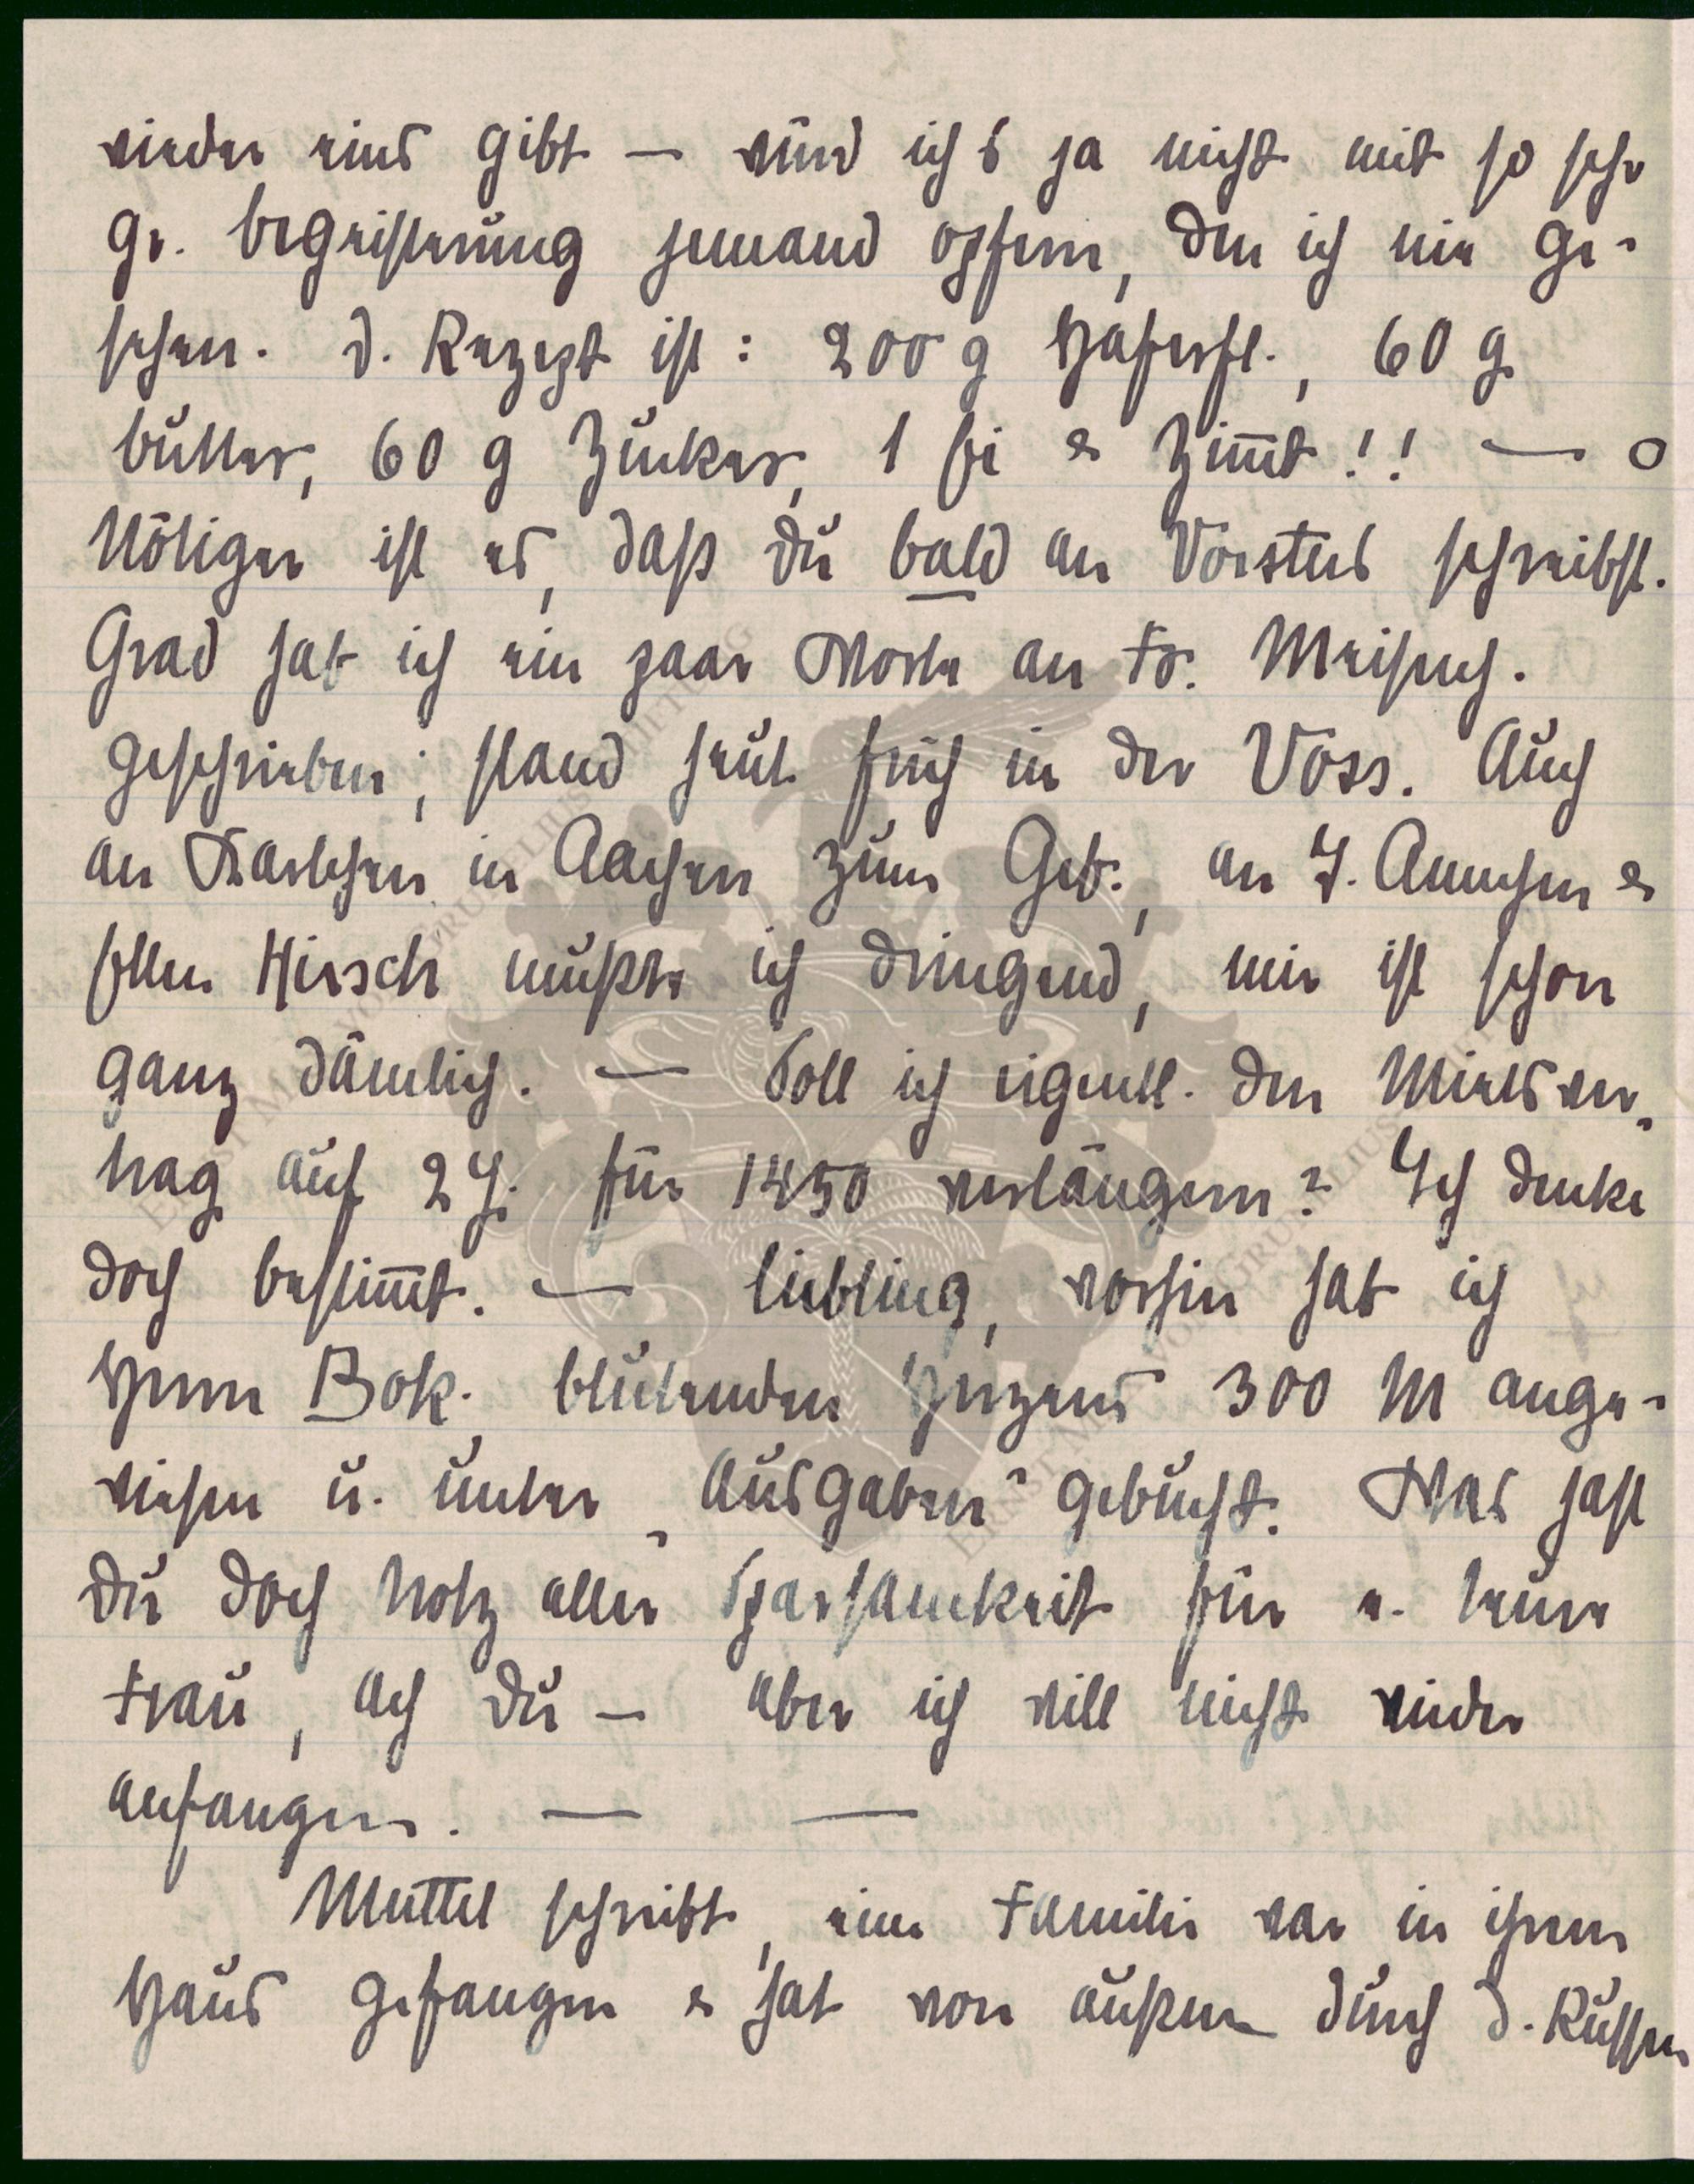 wieder eins gibt — würd ich's ja nicht mit so sehr
gr. Begeisterung jemand opfern, den ich nie ge-
sehen. D. Rezept ist: 200 g Haferfl., 60 g
Butter, 60 g Zucker, 1 Ei & Zimt!! —
Nötiger ist es, daß Du bald an Vorsteds schreibst.
Grad hab ich ein paar Worte an Fr. Meisnch.
geschrieben; stand heut früh in der Voss. Auch
an Karlchen in Aachen zum Geb., an J. Annchen &
Ellen Hirsch müßte ich dringend, mir ist schon
ganz dämlich. — Soll ich eigentl. den Mietsver-
trag auf 2 J. für 1450 verlängern? Ich denke
doch bestimmt. — Liebling, vorhin hab ich
Herrn Bok. blutenden Herzens 300 M ange-
wiesen u. unter „Ausgaben" gebucht. Was hast
Du doch trotz aller Sparsamkeit für e. teure
Frau, ach Du — aber ich will nicht wieder
anfangen. — —
Muttel schreibt, eine Familie war in ihrem
Haus gefangen & hat von außen durch d. Russen